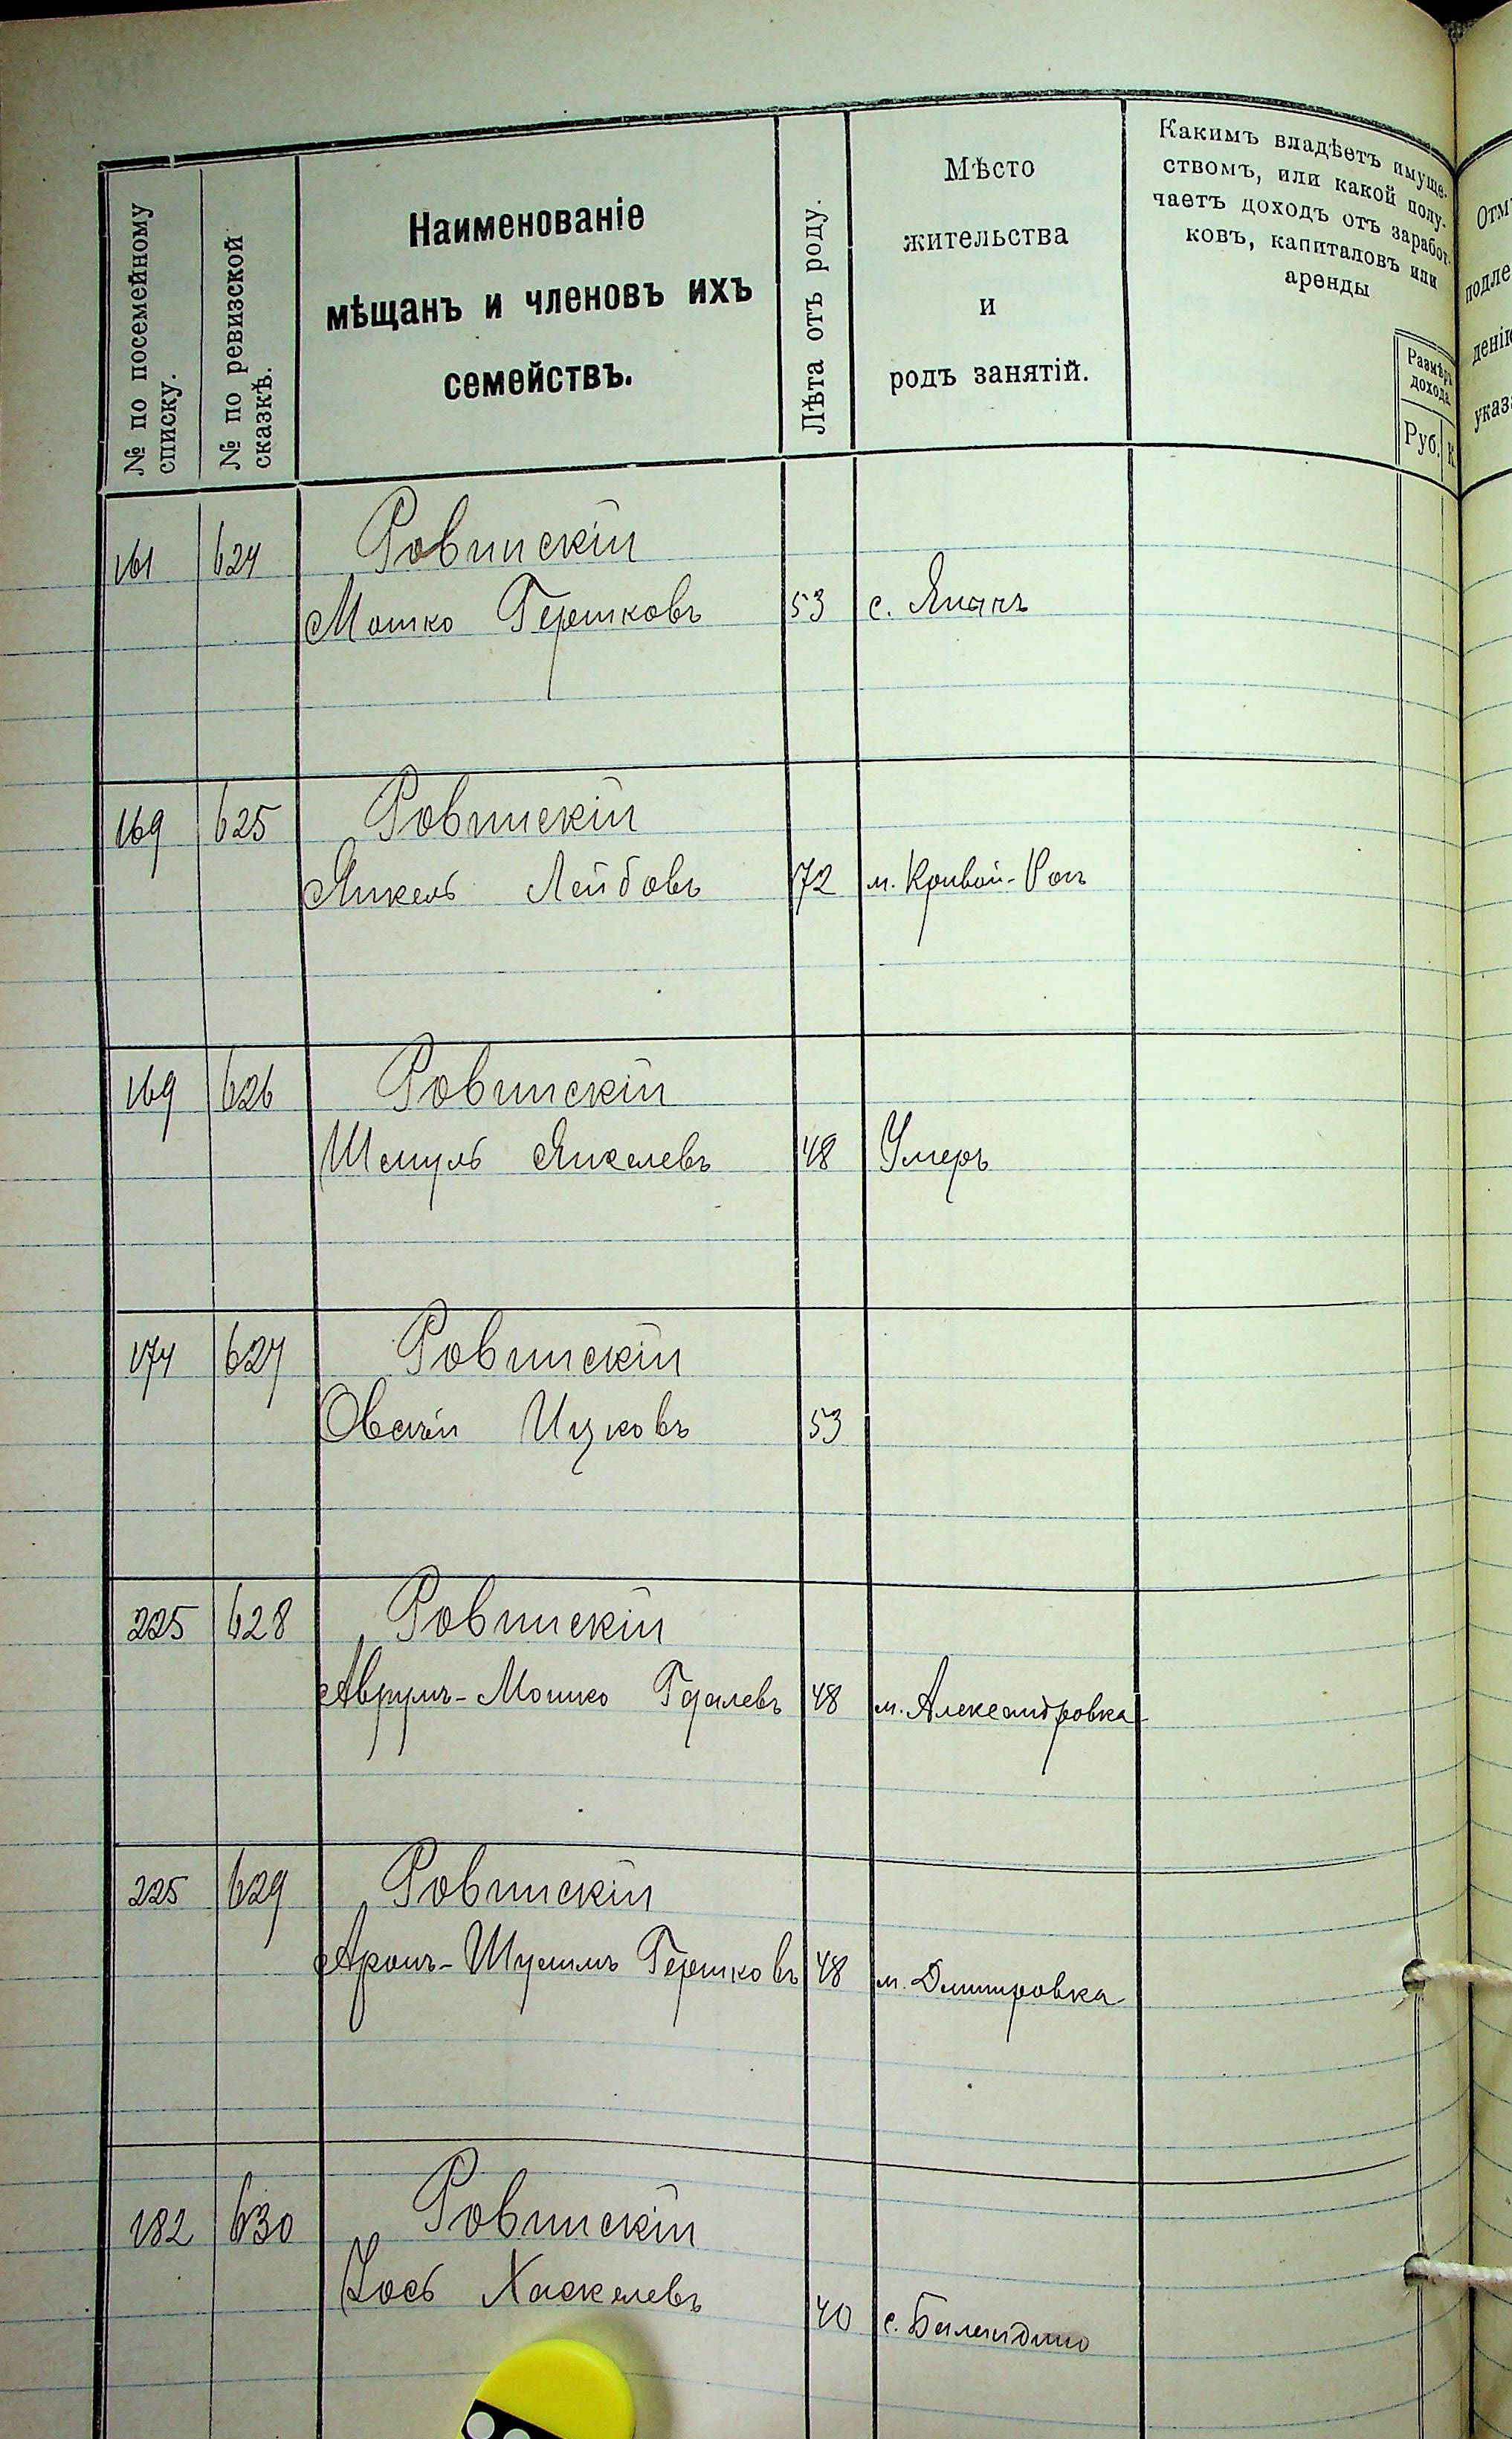 № по посемейному списку.
№ по ревизской сказкѣ.
Наименованіе
мѣщанъ и членовъ ихъ
семействъ.
Лѣта отъ роду.
Мѣсто
жительства
и
родъ занятій.
Какимъ владѣетъ имуще-
ствомъ, или какой полу-
чаетъ доходъ отъ заработ-
ковъ, капиталовъ или
аренды
Размѣръ
дохода.
Руб. К.
161 624 Ровинскій
Мошко Гершковъ 53 с.
169 625 Ровинскій
Янкель Лейбовъ 72 м. Кривой-Рогъ
169 626 Ровинскій
Шмуль Янкелевъ 48 Умеръ
174 627 Ровинскій
Овсей Ицковъ 53
225 628 Ровинскій
Аврумъ-Мошко Гдалевъ 48 м. Александровка
225 629 Ровинскій
Аронъ-Шулимъ Гершковъ 48 м. Дмитровка
182 630 Ровинскій
Іось Хаскелевъ
40 с. Баландино